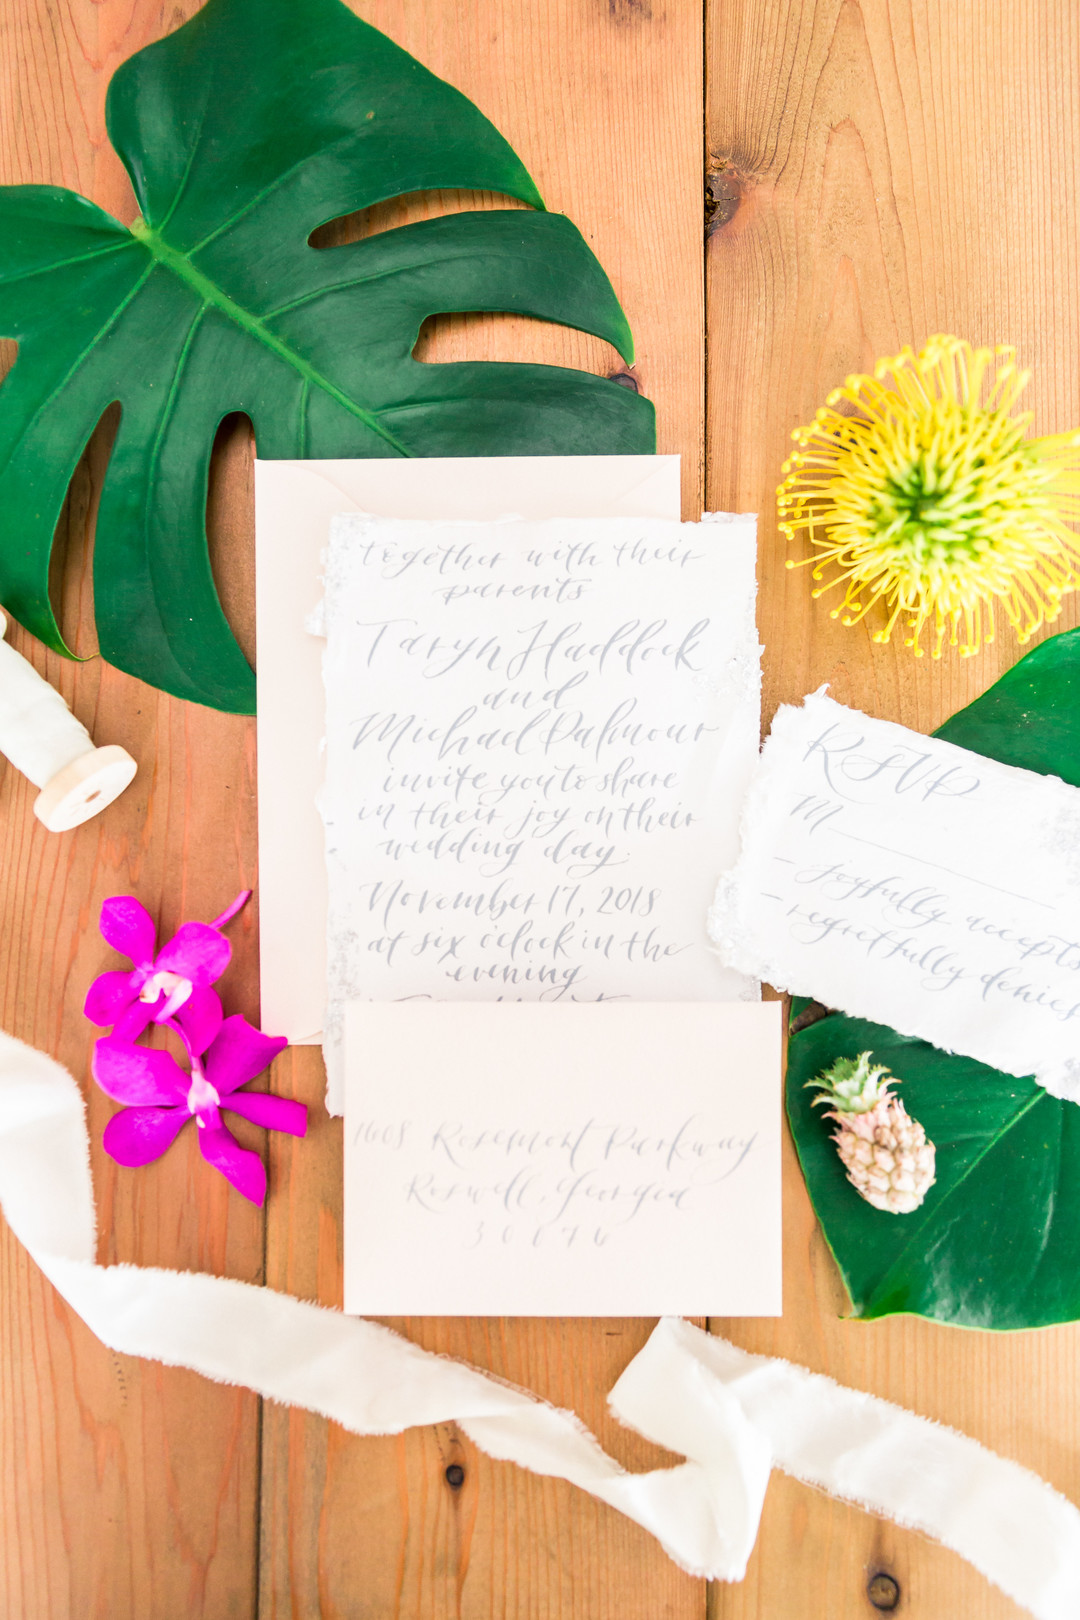 together with their
parents
Taryn Haddock
and
Michael Palmour
invite you to share
in their joy on their
wedding day.
November 17, 2018
at six o'clock in the
evening
RSVP
M
- Joyfully accepts
- regretfully denies
1608 Rosemont Parkway
Roswell, Georgia
30076